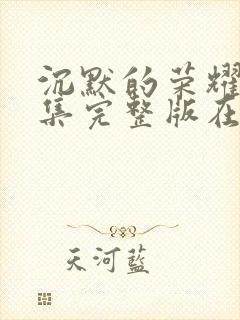 沉默的荣耀
集完整版在
天河蓝